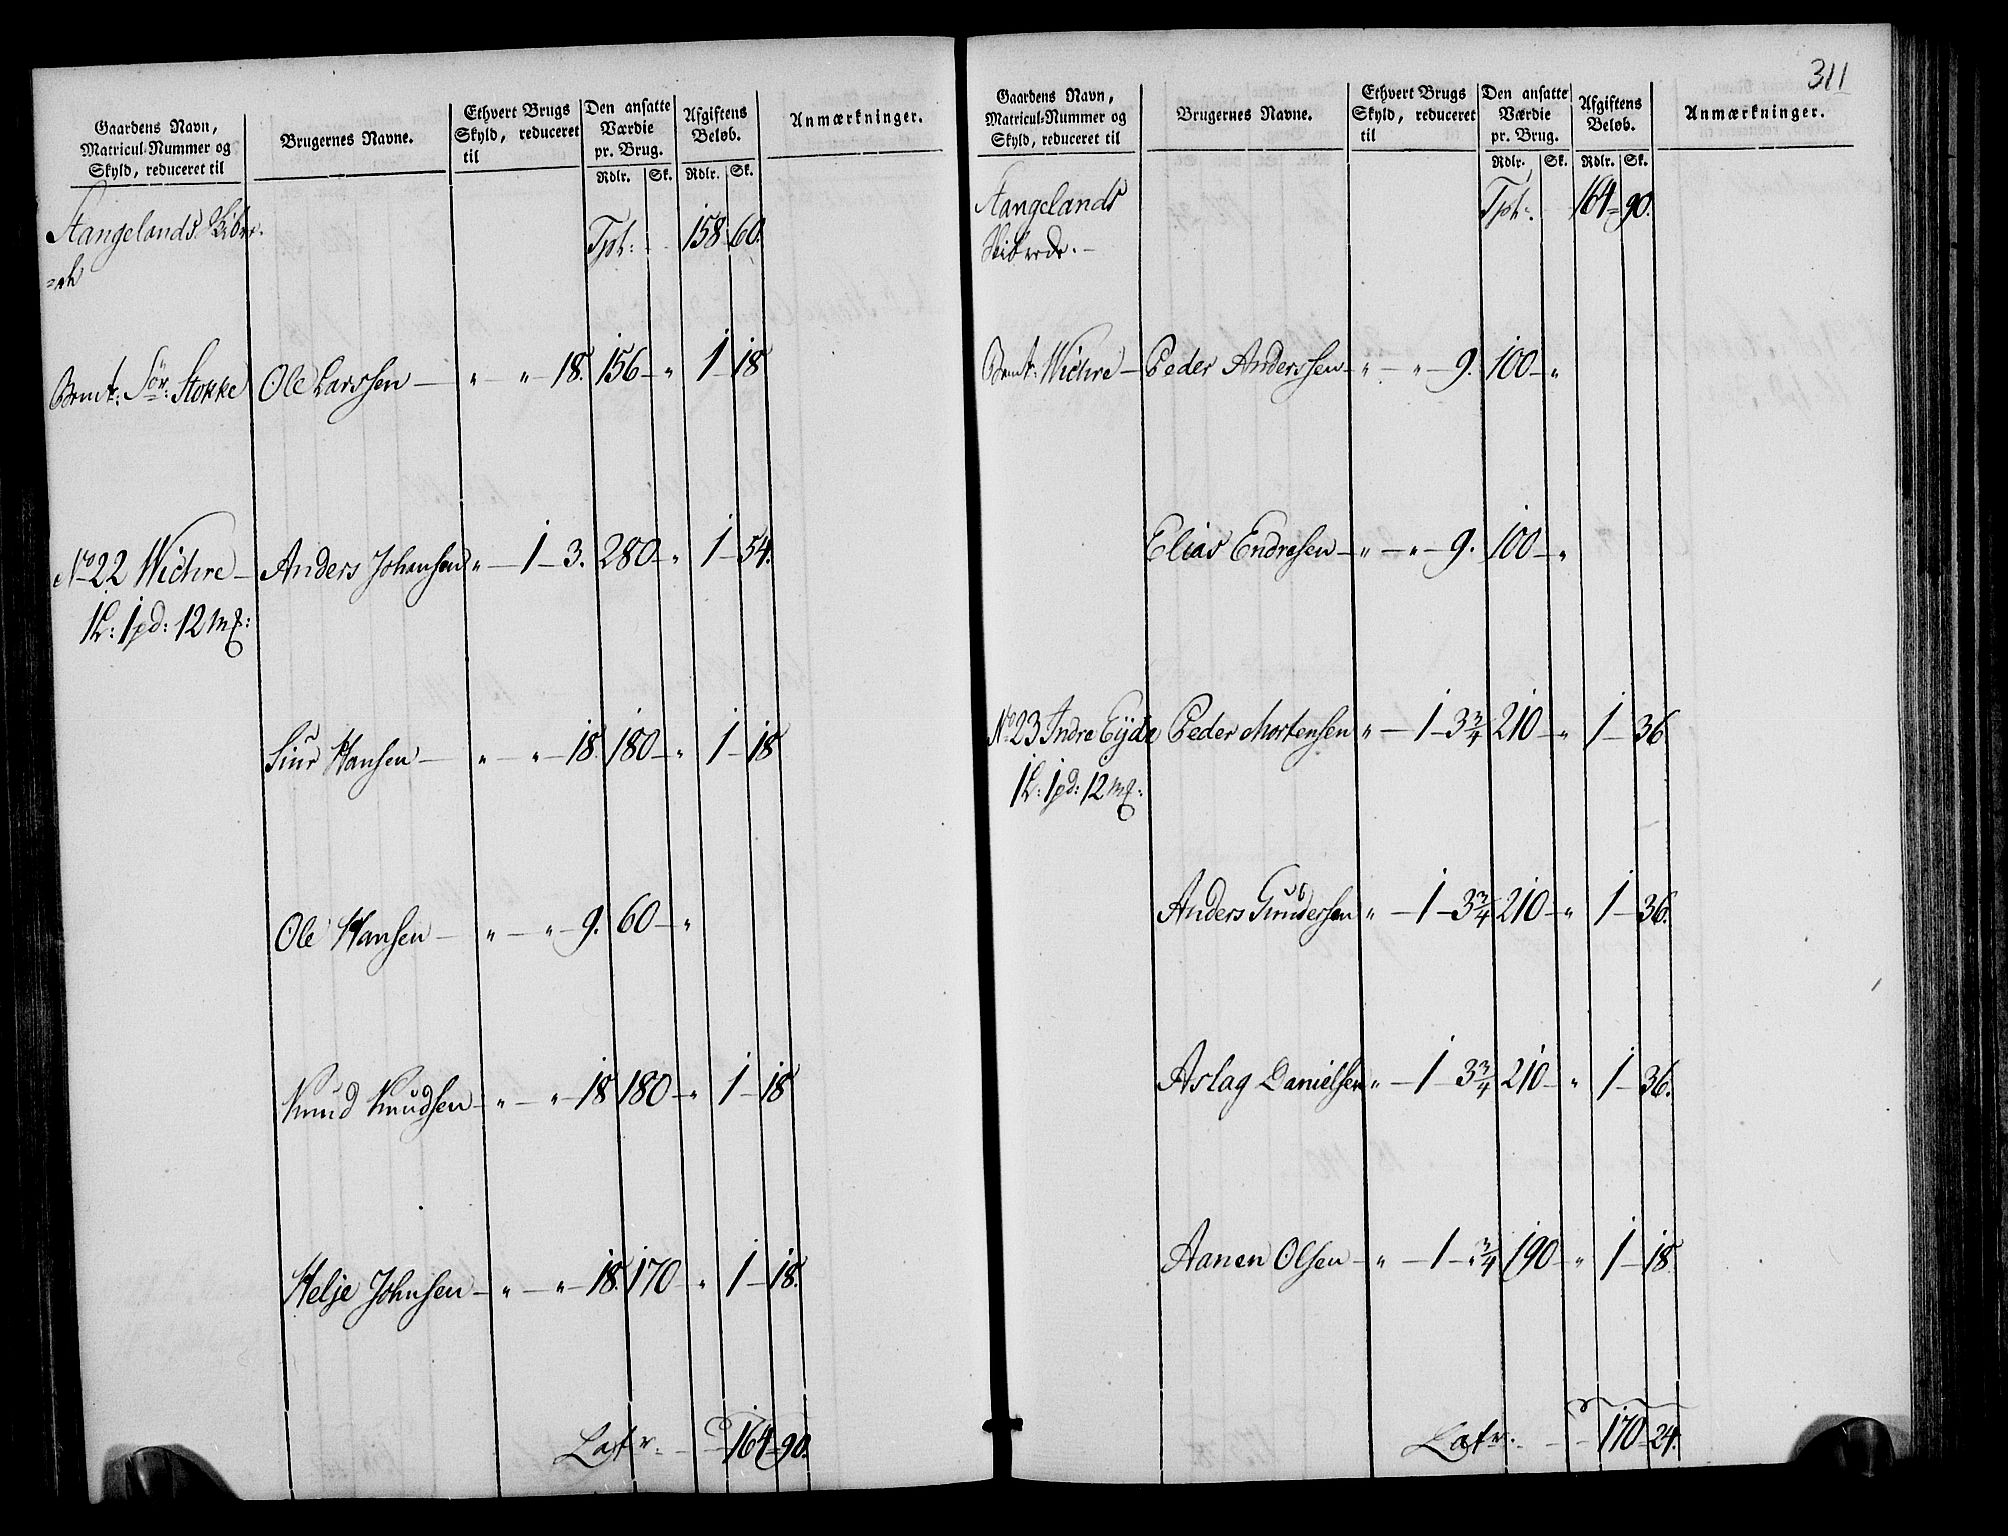 Gaardens Navn,
Matricul-Nummer og
Skyld, reduceret til
Brugernes Navne.
Ethvert Brugs
Skyld, reduceret
til
Den ansatte
Værdie
pr. Brug.
Rdlr. Sk.
Afgiftens
Beløb.
Rdlr. Sk.
Anmærkninger.
Stangelands Skibre-
=de
Tpt: 158 60.
Bemt: Sör Stokke Ole Larssen — " — " — 18. 156 — " 1 — 18
No 22 Wichre — Anders Johansen " — 1 — 3. 280 — " 1 — 54.
1 L: 1 pd: 12 mk:
Siur Hansen — " — " — 18. 180 — " 1 — 18
Ole Hansen — " — " — 9. 60 — "
Knud Knudsen — " — " — 18 180 — " 1 — 18
Helje Johnsen — " — " — 18. 170 — " 1 — 18.
Latr: 164 90.
311
Gaardens Navn,
Matricul-Nummer og
Skyld, reduceret til
Brugernes Navne.
Ethvert Brugs
Skyld, reduceret
til
Den ansatte
Værdie
pr. Brug.
Rdlr. Sk.
Afgiftens
Beløb.
Rdlr. Sk.
Anmærkninger.
Stangelands
Skibrede. —
Tpt: 164 90.
Bemt: Wichre — Peder Anderssen — " — " — 9. 100 — "
Elias Endresen — " — " — 9. 100 — "
No 23 Indre Eijde Peder Mortensen " — 1 — 3 3/4 210 — " 1 — 36
1 L: 1 pd: 12 mk:
Anders Gundersen " — 1 — 3 3/4 210 — " 1 — 36.
Aslag Danielsen " — 1 — 3 3/4 210 — " 1 — 36.
Aanen Olsen — " — 1 — " 3/4 190 — " 1 — 18
Latr: 170 24.